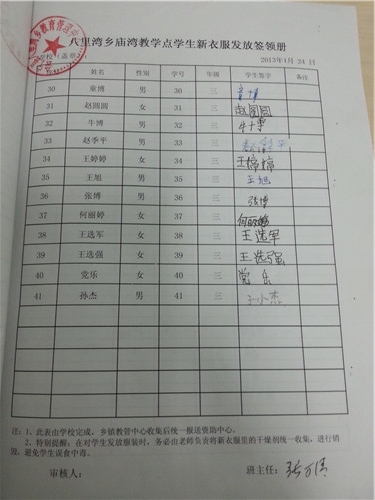 八里湾乡庙湾教学点学生新衣服发放签领册
学校（盖章） 2013年1月 24 日
姓名 性别 学号 年级 学生签字 备注
30 童博 男 30 三 童博
31 赵圆圆 女 31 三 赵圆圆
32 牛博 男 32 三 牛博
33 赵季平 男 33 三
34 王婷婷 女 34 三 王婷婷
35 王旭 男 35 三 王旭
36 张博 男 36 三 张博
37 何丽婷 女 37 三 何丽婷
38 王选军 女 38 三 王选军
39 王选强 女 39 三 王选强
40 党乐 女 40 三 党乐
41 孙杰 男 41 三 孙小杰
注：1、此表由学校完成，乡镇教管中心收集后统一报送资助中心。
2、特别提醒：在对学生发放服装时，务必由老师负责将新衣服里的干燥剂统一收集，进行销
毁，避免学生误食中毒。
审核人： 班主任：张万倩